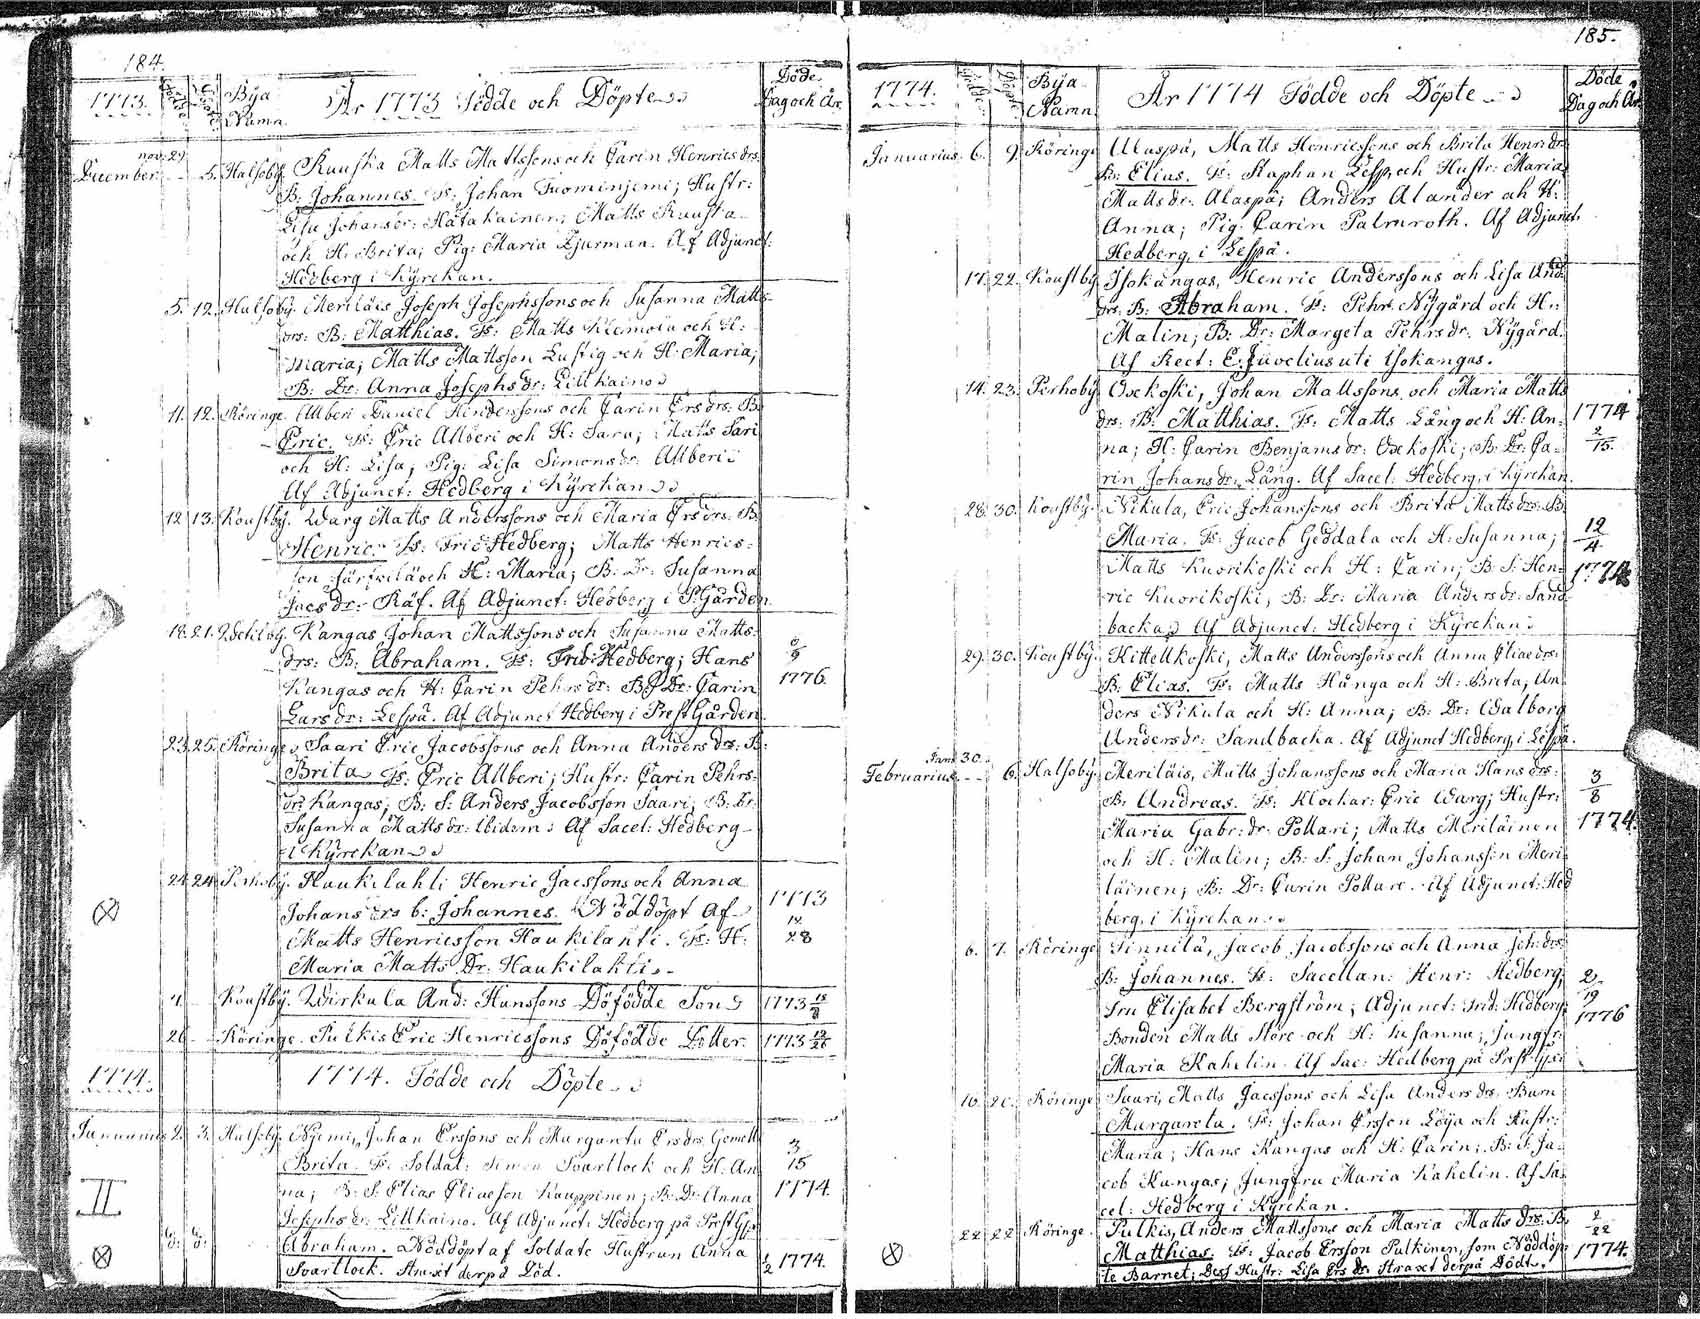 184.
1773.
Bÿa Namn.
År 1773 Födde och Döpte
Döde Dag och År.
nov: 29.
December 5. Halsobÿ. Ruuska Matts Mattssons och Carin Henricsdrs.
B: Johannes. Fs: Johan Tuominjemi; Hustr:
Lisa Johansdr: Hatakainen; Matts Ruuska
och H: Brita; Pig: Maria Djurman. Af Adjunct:
Hedberg i Kÿrckan.
5. 12. Halsobÿ. Meriläis Joseph Josephssons och Susanna Matts-
drs: B: Matthias. Fs: Matts Klemola och H:
Maria; Matts Mattsson Lustig och H: Maria;
B: Dr: Anna Josephsdr: Lillkaino
11. 12. Köringe. Allberi Daniel Hinderssons och Carin Ersdrs: B.
Eric. Fs: Eric Allberi och H: Sara; Matts Sari
och H: Lisa; Pig: Lisa Simonsdr: Allberi
Af Adjunct: Hedberg i Kÿrckan
12. 13. Koustbÿ. Warg Matts Anderssons och Maria Ersdrs: B.
Henric. Fs: Frid: Hedberg; Matts Henrics-
son Järfvilä och H: Maria; B: Dr: Susanna
Jacsdr: Räf. Af Adjunct: Hedberg i P:Gården.
18. 21. Kangas Johan Mattssons och Susanna Matts-
drs: B: Abraham. Fs: Frid: Hedberg; Hans
Kangas och H: Carin Pehrsdr: B: Dr: Carin
Larsdr: Lespä. Af Adjunct Hedberg i PrestGården.
9
1776.
23. 25. Köringe. Saari Eric Jacobssons och Anna Andersdrs: B:
Brita Fs: Eric Allberi; Hustr: Carin Pehrs-
dr: Kangas; B: S: Anders Jacobsson Saari; B: Dr:
Susanna Mattsdr: Ibidem: Af Sacel: Hedberg
i Kÿrckan
24. 24. Perhobÿ. Haukilahti Henric Jacssons och Anna
Johansdrs b: Johannes. Nöddöpt Af
Matts Henricsson Haukilahti. Fs: H:
Maria Matts Dr: Haukilahti.
1773
12
28
Koustbÿ. Wirkula And: Hanssons Döfödde Son
1773
26. Köringe. Pulkis Eric Henricssons Döfödde Dotter.
1773 12/26
1774.
1774. Födde och Döpte
Januarius 2. 3. Halsobÿ. Njemi, Johan Erssons och Margareta Ersdrs. Gemell:
Brita. Fs: Soldat: Simon Svartlock och H: An
na; B: S: Elias Eliasson Kauppinen; B: Dr: Anna
Josephsdr: Lillkaino. Af Adjunct: Hedberg på PrestGn
3
15
1774.
II
d: d: Abraham. Nöddöpt af Soldats Hustrun Anna
Svartlock. Straxt derpå Död.
1774.
185.
1774.
Födde
Döpte
Bÿa Namn
År 1774 Födde och Döpte
Döde Dag och År
Januarius. 6. 9. Köringe Alaspä, Matts Henricssons och Brita Henrsdr:
B: Elias. Fs: Staphan Lespä och Hustr: Maria
Mattsdr: Alaspä; Anders Alander och H:
Anna; Pig: Carin Palmroth. Af Adjunct.
Hedberg i Lespä.
17. 22. Koustbÿ Isokangas, Henric Anderssons och Lisa And
drs: B: Abraham. Fs: Pehr Nÿgård och H:
Malin; B: Dr: Margeta Pehrsdr: Nÿgård.
Af Rect: E: Juvelius uti Isokangas.
14. 23. Perhobÿ Oxekoski, Johan Mattssons och Maria Matts
drs: B: Matthias. Fs: Matts Lång och H: An-
na; H: Carin Benjamsdr: Oxekoski; B: Dr: Ca-
rin Johansdr: Lång. Af Sacel: Hedberg i Kÿrckan.
1774
2
15.
28. 30. Koustbÿ. Nikula, Eric Johanssons och Brita Mattsdrs: B:
Maria. Fs: Jacob Geddala och H: Susanna;
Matts Kuorikoski och H: Carin; B: S: Hen-
ric Kuorikoski, B: Dr: Maria Andersdr: Sand-
backa Af Adjunct: Hedberg i Kÿrckan
12
4
1774
29. 30. Koustbÿ. Kittelkoski, Matts Anderssons och Anna Eliædrs:
B: Elias. Fs: Matts Hånga och H: Brita; An
ders Nikula och H: Anna; B: Dr: Walborg
Andersdr: Sandbacka. Af Adjunct Hedberg i Lespä.
Jan: 30.
Februarius 6. Halsobÿ. Meriläis, Matts Johanssons och Maria Hansdrs:
B: Andreas. Fs: Klockar: Eric Warg; Hustr:
Maria Gabr: dr: Pollari; Matts Meriläinen
och H: Malin; B: S: Johan Johansson Meri-
läinen; B: Dr: Carin Pollari. Af Adjunct: Hed
berg i Kÿrckan
3
8
1774.
6. 7. Köringe Finnilä, Jacob Jacobssons och Anna Joh: drs:
B: Johannes. Fs: Sacellan: Henr: Hedberg,
Fru Elisabet Bergström; Adjunct: Frid: Hedberg
Bonden Matts Store och H: Susanna; Jungfr:
Maria Kahelin. Af Sac: Hedberg på Prest
2
19
1776
16. 20. Köringe Saari, Matts Jacssons och Lisa Andersdrs. Barn
Margareta. Fs: Johan Ersson Löija och Hustr:
Maria; Hans Kangas och H: Carin; B: S: Ja-
cob Kangas; Jungfru Maria Kahelin. Af Sa-
cel: Hedberg i Kÿrckan.
22. 22. Köringe. Pulkis, Anders Mattssons och Maria Mattsdrs: B.
Matthias. Fs: Jacob Ersson Pulkinen, som Nöddöp-
te Barnet; Dess Hustr: Lisa Ersdr: Straxt derpå Dödt.
2
22
1774.